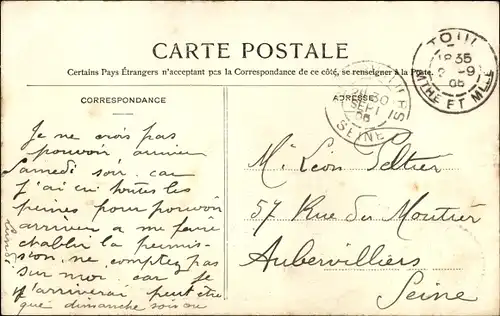 CARTE POSTALE
Certains Pays Étrangers n'acceptant pas la Correspondance de ce côté, se renseigner à la Poste.
CORRESPONDANCE
ADRESSE
TOUL
MTHE ET MLLE
SEPT
SEINE
Je ne crois pas
pouvoir arriver
Samedi soir car
j'ai eu toutes les
peines pour pouvoir
arriver a me faire
etablir la permis-
sion. ne comptez pas
sur moi. car je
n'arriverai peut etre
que dimanche soir ou
lundi
M. Léon Peltier
57 Rue du Moutier
Aubervilliers
Seine